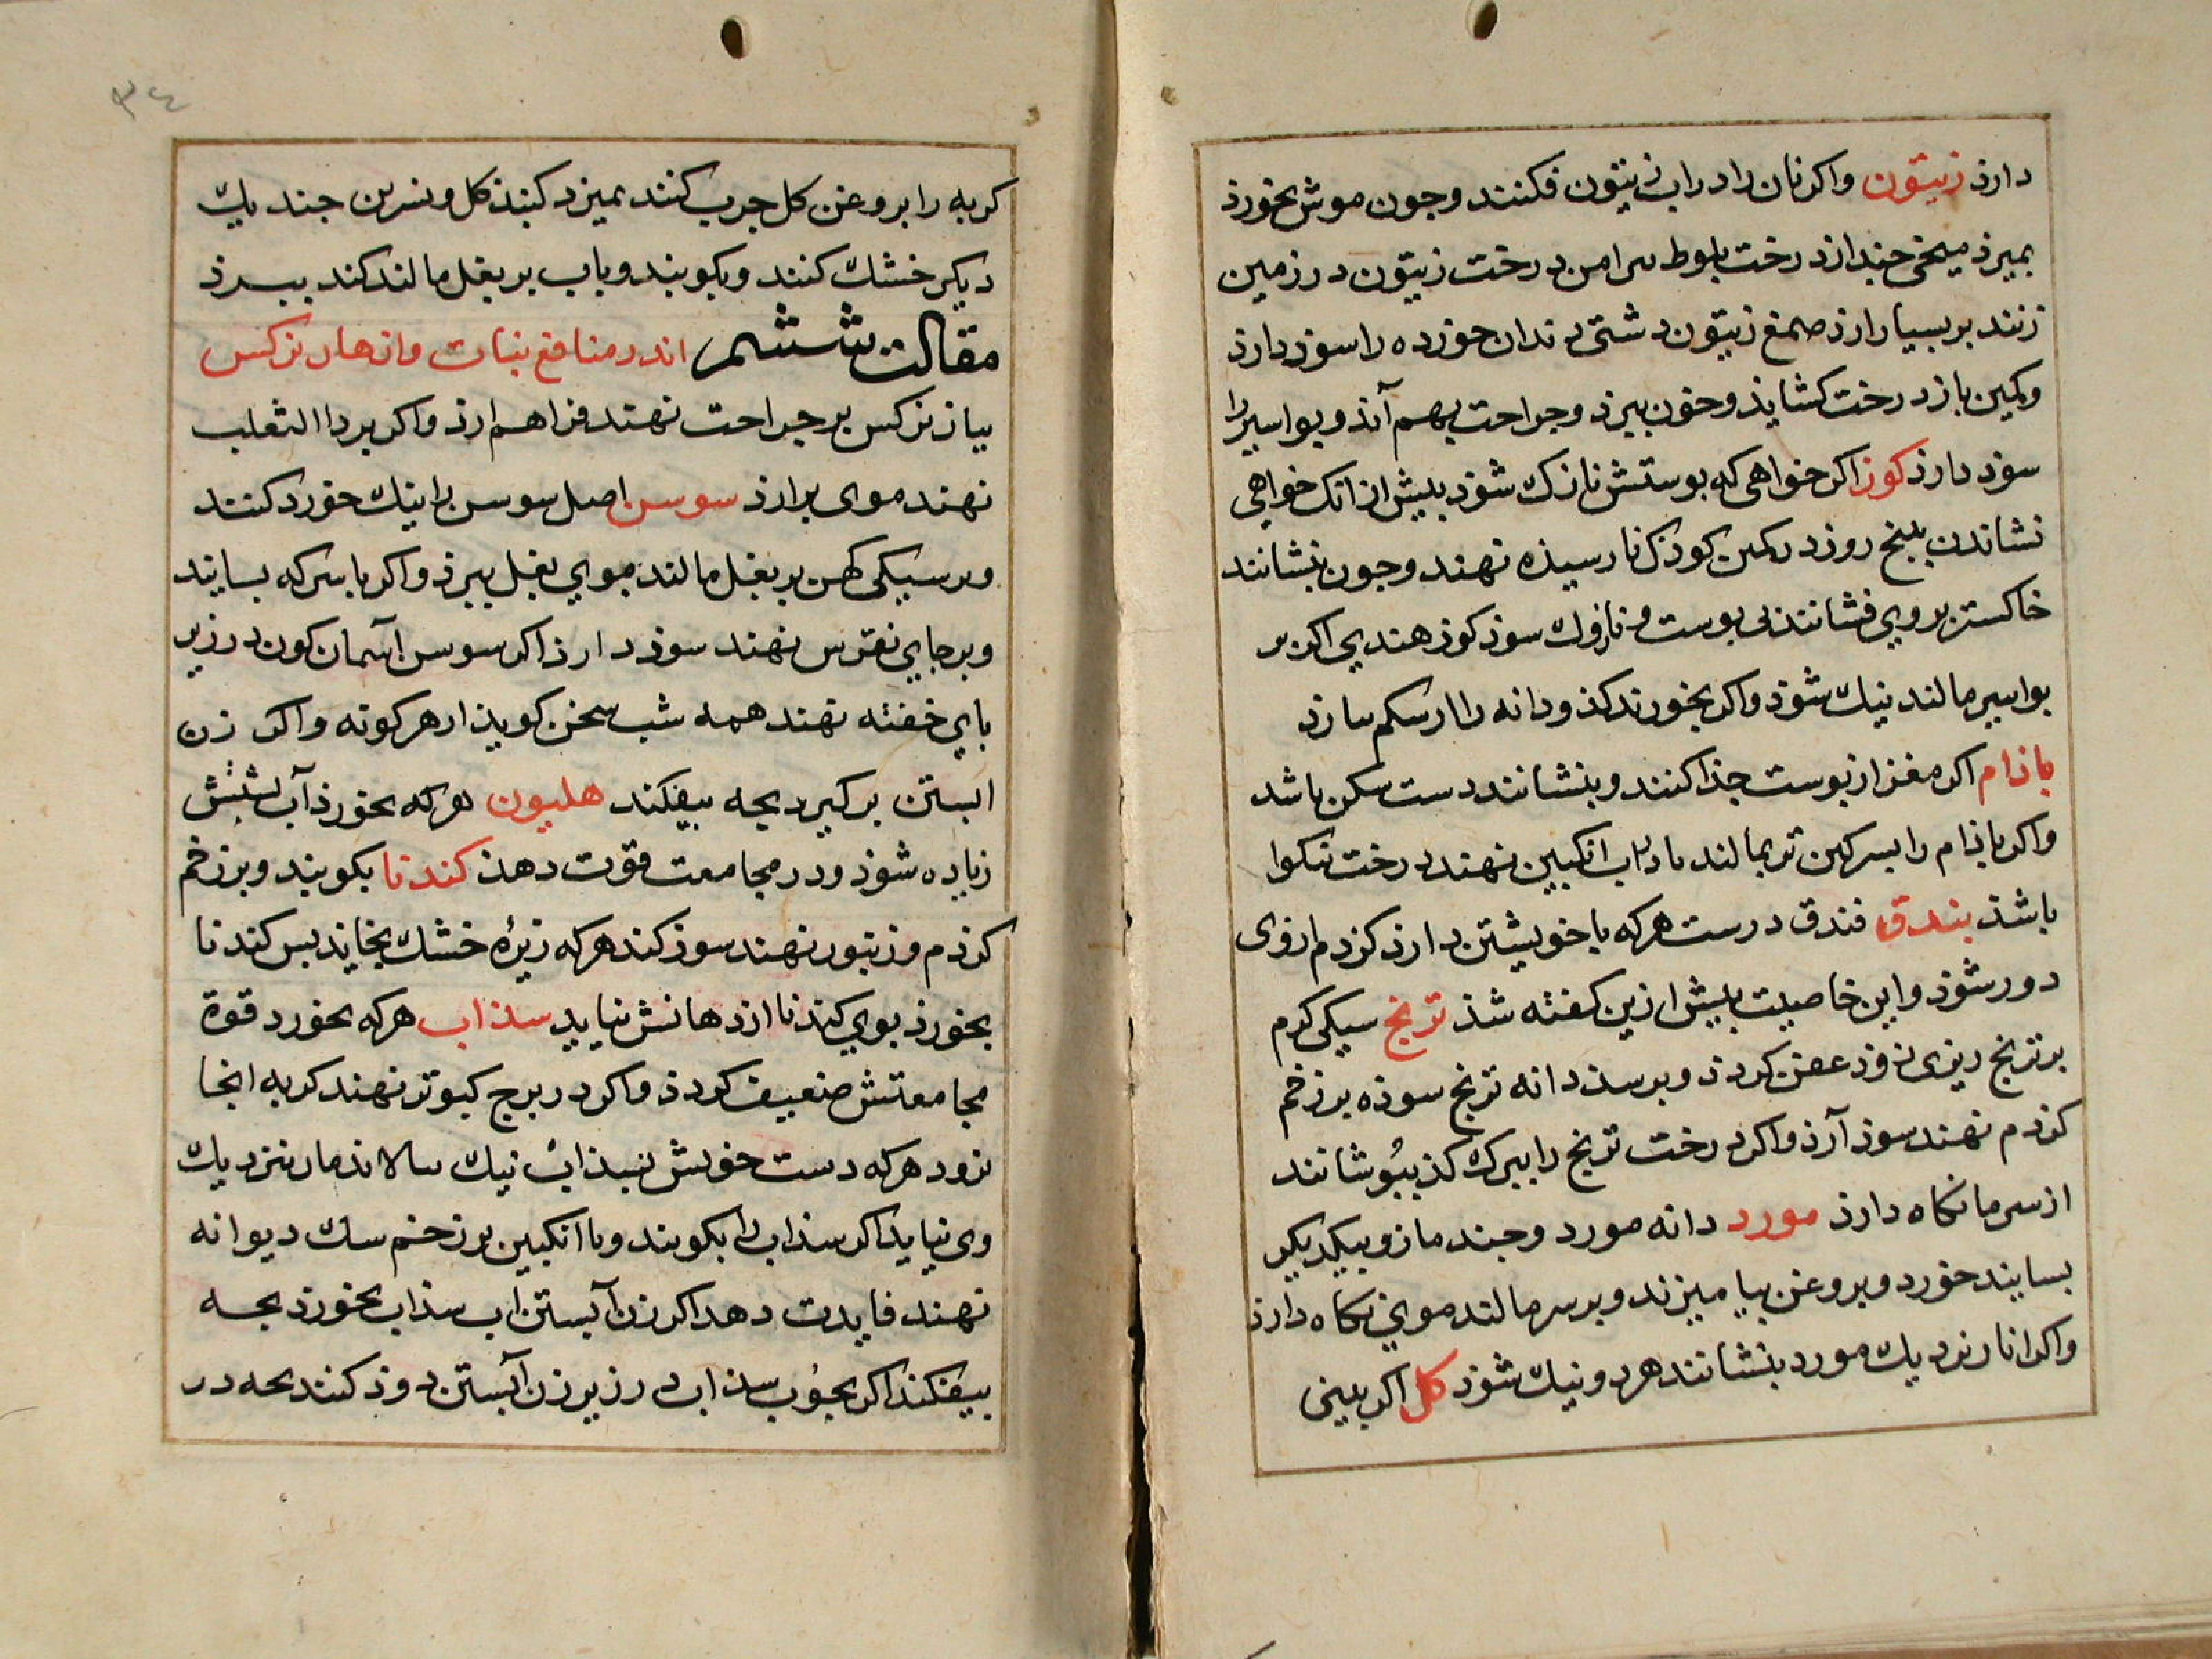 دارذ زیتون واکر نان را در اب زیتون فکنند وجون موش بخورذ
بمیرذ میخی جند از درخت بلوط برامن درخت زیتون در زمین
زنند بر بسیار ارذ صمغ زیتون دشتی دندان خورده را سوذ دارذ
وکمین باز درخت کشایذ وخون ببرذ وجراحت بهم آنذ وبواسیر را
سوذ دارذ کوز اکر خواهی که بوستش نازک شوذ بیش از انک خواهی
نشاندن بنج روز در کمین کوذک نارسیذه نهند وجون بنشانند
خاکستر بر وی فشانند بی بوست ونازک سوذ کوز هندی اکر بر
بواسیر مالند نیک شوذ واکر بخورند کذودانه را از سکم بازد
باذام اکر مغز از بوست جذا کنند وبنشانند دست سکن باشد
واکر باذام را بسرکین تر بمالند یا در اب انکبین نهند درخت نیکوا
باشذ بندق فندق درست هرکه با خویشتن دارذ کزدم از وی
دور شوذ واین خاصیت بیش ازین کفته شذ ترنج سیکی کرم
بر ترنج ریزی زوذ عفن کردذ وبرسذ دانه ترنج سوذه بر زخم
کزدم نهند سوذ آرذ واکر درخت ترنج را ببرک کذ ببوشانند
از سرما نکاه دارذ مورد دانه مورد وجند مازو بیکدیکر
بسایند خورد وبروغن بیامیزند وبر سر مالند موی نکاه دارذ
واکر انار نزدیک مورد بنشانند هر دو نیک شوذ کل اکر بینی
٣٤
کربه را بروغن کل جرب کنند بمیزد کنبذ کل ونسرین جند یک
دیکر خشک کنند وبکوبند وباب بر بغل مالند کند ببرذ
مقالت ششم اندر منافع نبات وازهار نرکس
بیاز نرکس بر جراحت نهند فراهم ارذ واکر بر داالثعلب
نهند موی برارذ سوسن اصل سوسن را نیک خورد کنند
وبر سیکی کهن بر بغل مالند موی بغل ببرذ واکر با سرکه بسایند
وبر جای نقرس نهند سوذ دارذ اکر سوسن اسمان کون در زیر
بای خفته نهند همه شب سخن کویذ از هر کونه واکر زن
ابستن بر کیرد بجه بیفکند هلیون هرکه بخورذ آب بشتش
زیاده شوذ ودر مجامعت قوت دهذ کندنا بکوبند وبر زخم
کزدم وزنبور نهند سوذ کند هرکه زیره خشک بخاید بس کندنا
بخورذ بوی کندنا از دهانش نیاید سذاب هرکه بخورد قوة
مجامعتش ضعیف کردذ واکر در برج کبوتر نهند کربه انجا
نرود هرکه دست خویش بسذاب نیک بیالاید مار نزدیک
وی نیاید اکر سذاب را بکوبند وبا انکبین بر زخم سک دیوانه
نهند فایدت دهد اکر زن آبستن اب سذاب بخورذ بجه
بیفکند اکر بجوب سذاب در زیر زن آبستن دوذ کنند بجه در